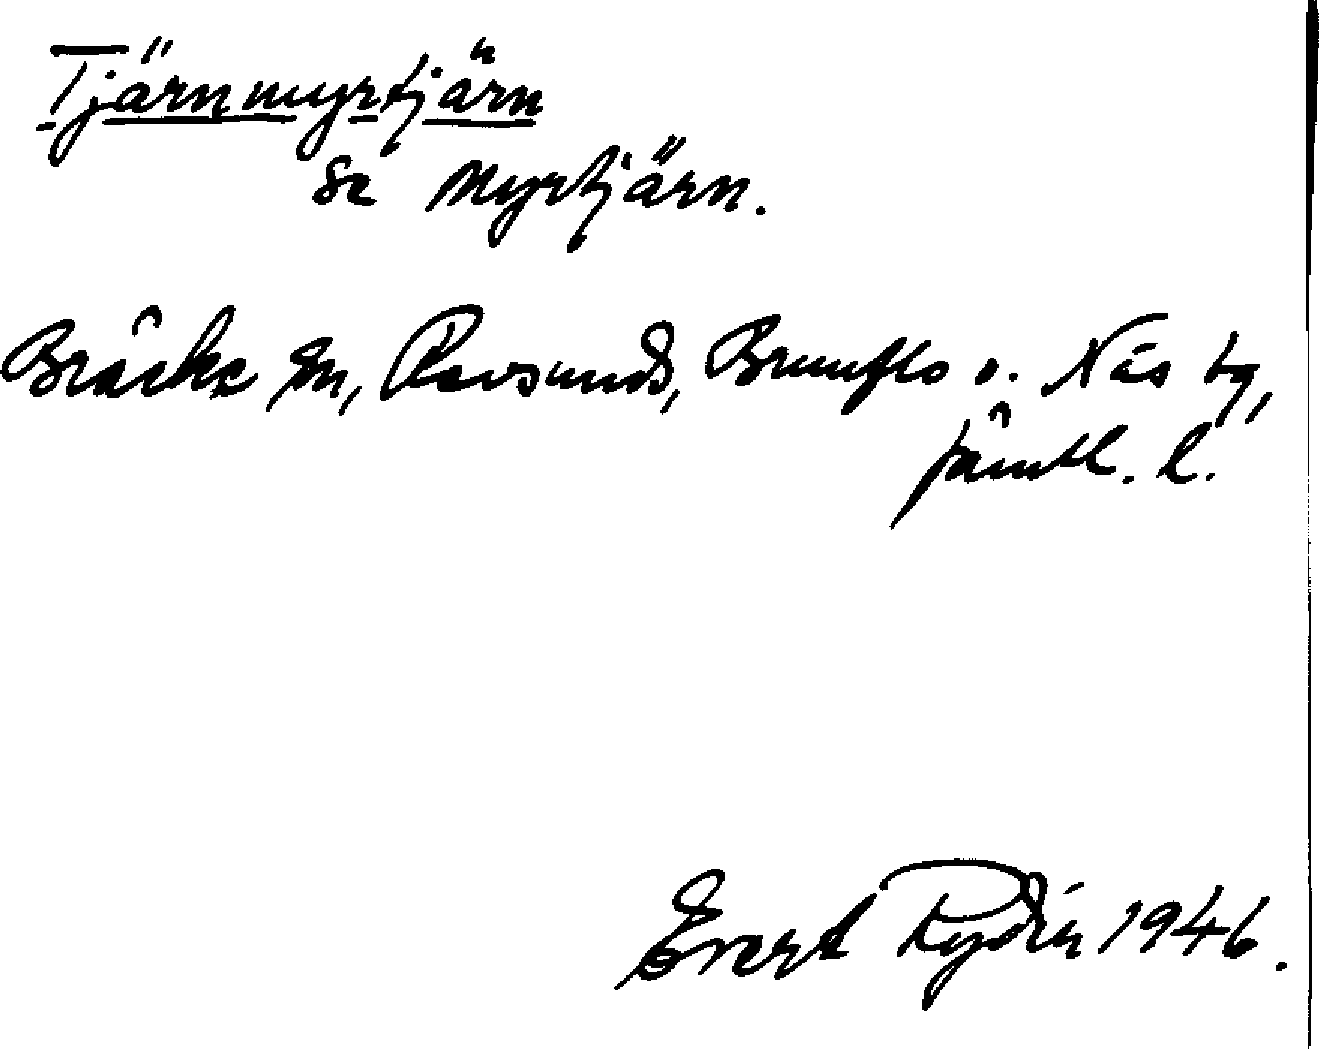 Tjärnmyrtjärn
Se Myrtjärn.
Bräcke sn, Revsunds, Brunflo o. Näs tg,
Jämtl. l.
Evert Rydén 1946.